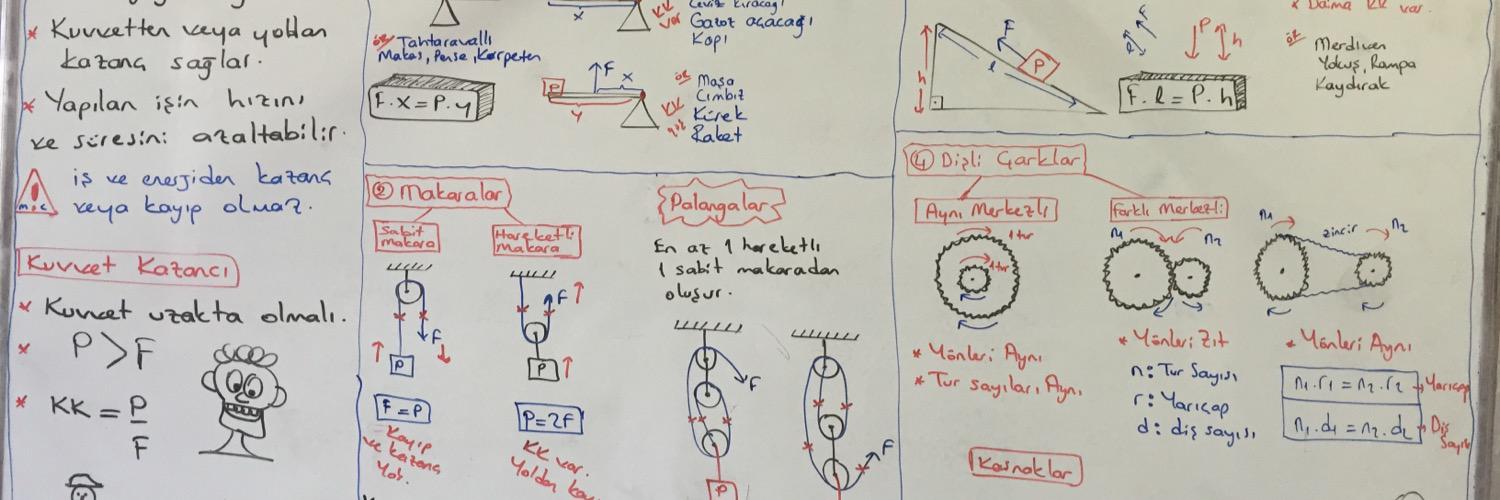 * Kuvvetten veya yoldan
kazanç sağlar.
* Yapılan işin hızını
ve süresini azaltabilir.
! iş ve enerjiden kazanç
veya kayıp olmaz.
Kuvvet Kazancı
* Kuvvet uzakta olmalı.
* P > F
* KK = P
F
x
KK
var
Gazoz açacağı
Kapı
ör/ Tahtaravalli
Makas, Pense, Kerpeten
F.x = P.y
P
F
x
y
KK
yok
ör/ Maşa
Cımbız
Kürek
Raket
② Makaralar
Sabit
makara
Hareketli
makara
F
P
F
P
F = P
Kayıp
ve kazanç
Yok.
P = 2F
KK var.
Yoldan
Palangalar
En az 1 hareketli
1 sabit makaradan
oluşur.
F
P
F
h
F
P
l
F
l
P
h
F.l = P.h
* Daima KK var.
ör/ Merdiven
Yokuş, Rampa
Kaydırak
④ Dişli Çarklar
Aynı Merkezli
1 tur
1 tur
* Yönleri Aynı
* Tur sayıları Aynı
Farklı Merkezli
n₁ n₂
* Yönleri Zıt
n: Tur Sayısı
r: Yarıçap
d: diş sayısı
n₁ zincir n₂
* Yönleri Aynı
n₁.r₁ = n₂.r₂ → Yarıçap
n₁.d₁ = n₂.d₂ → Diş
Sayısı
Kasnaklar